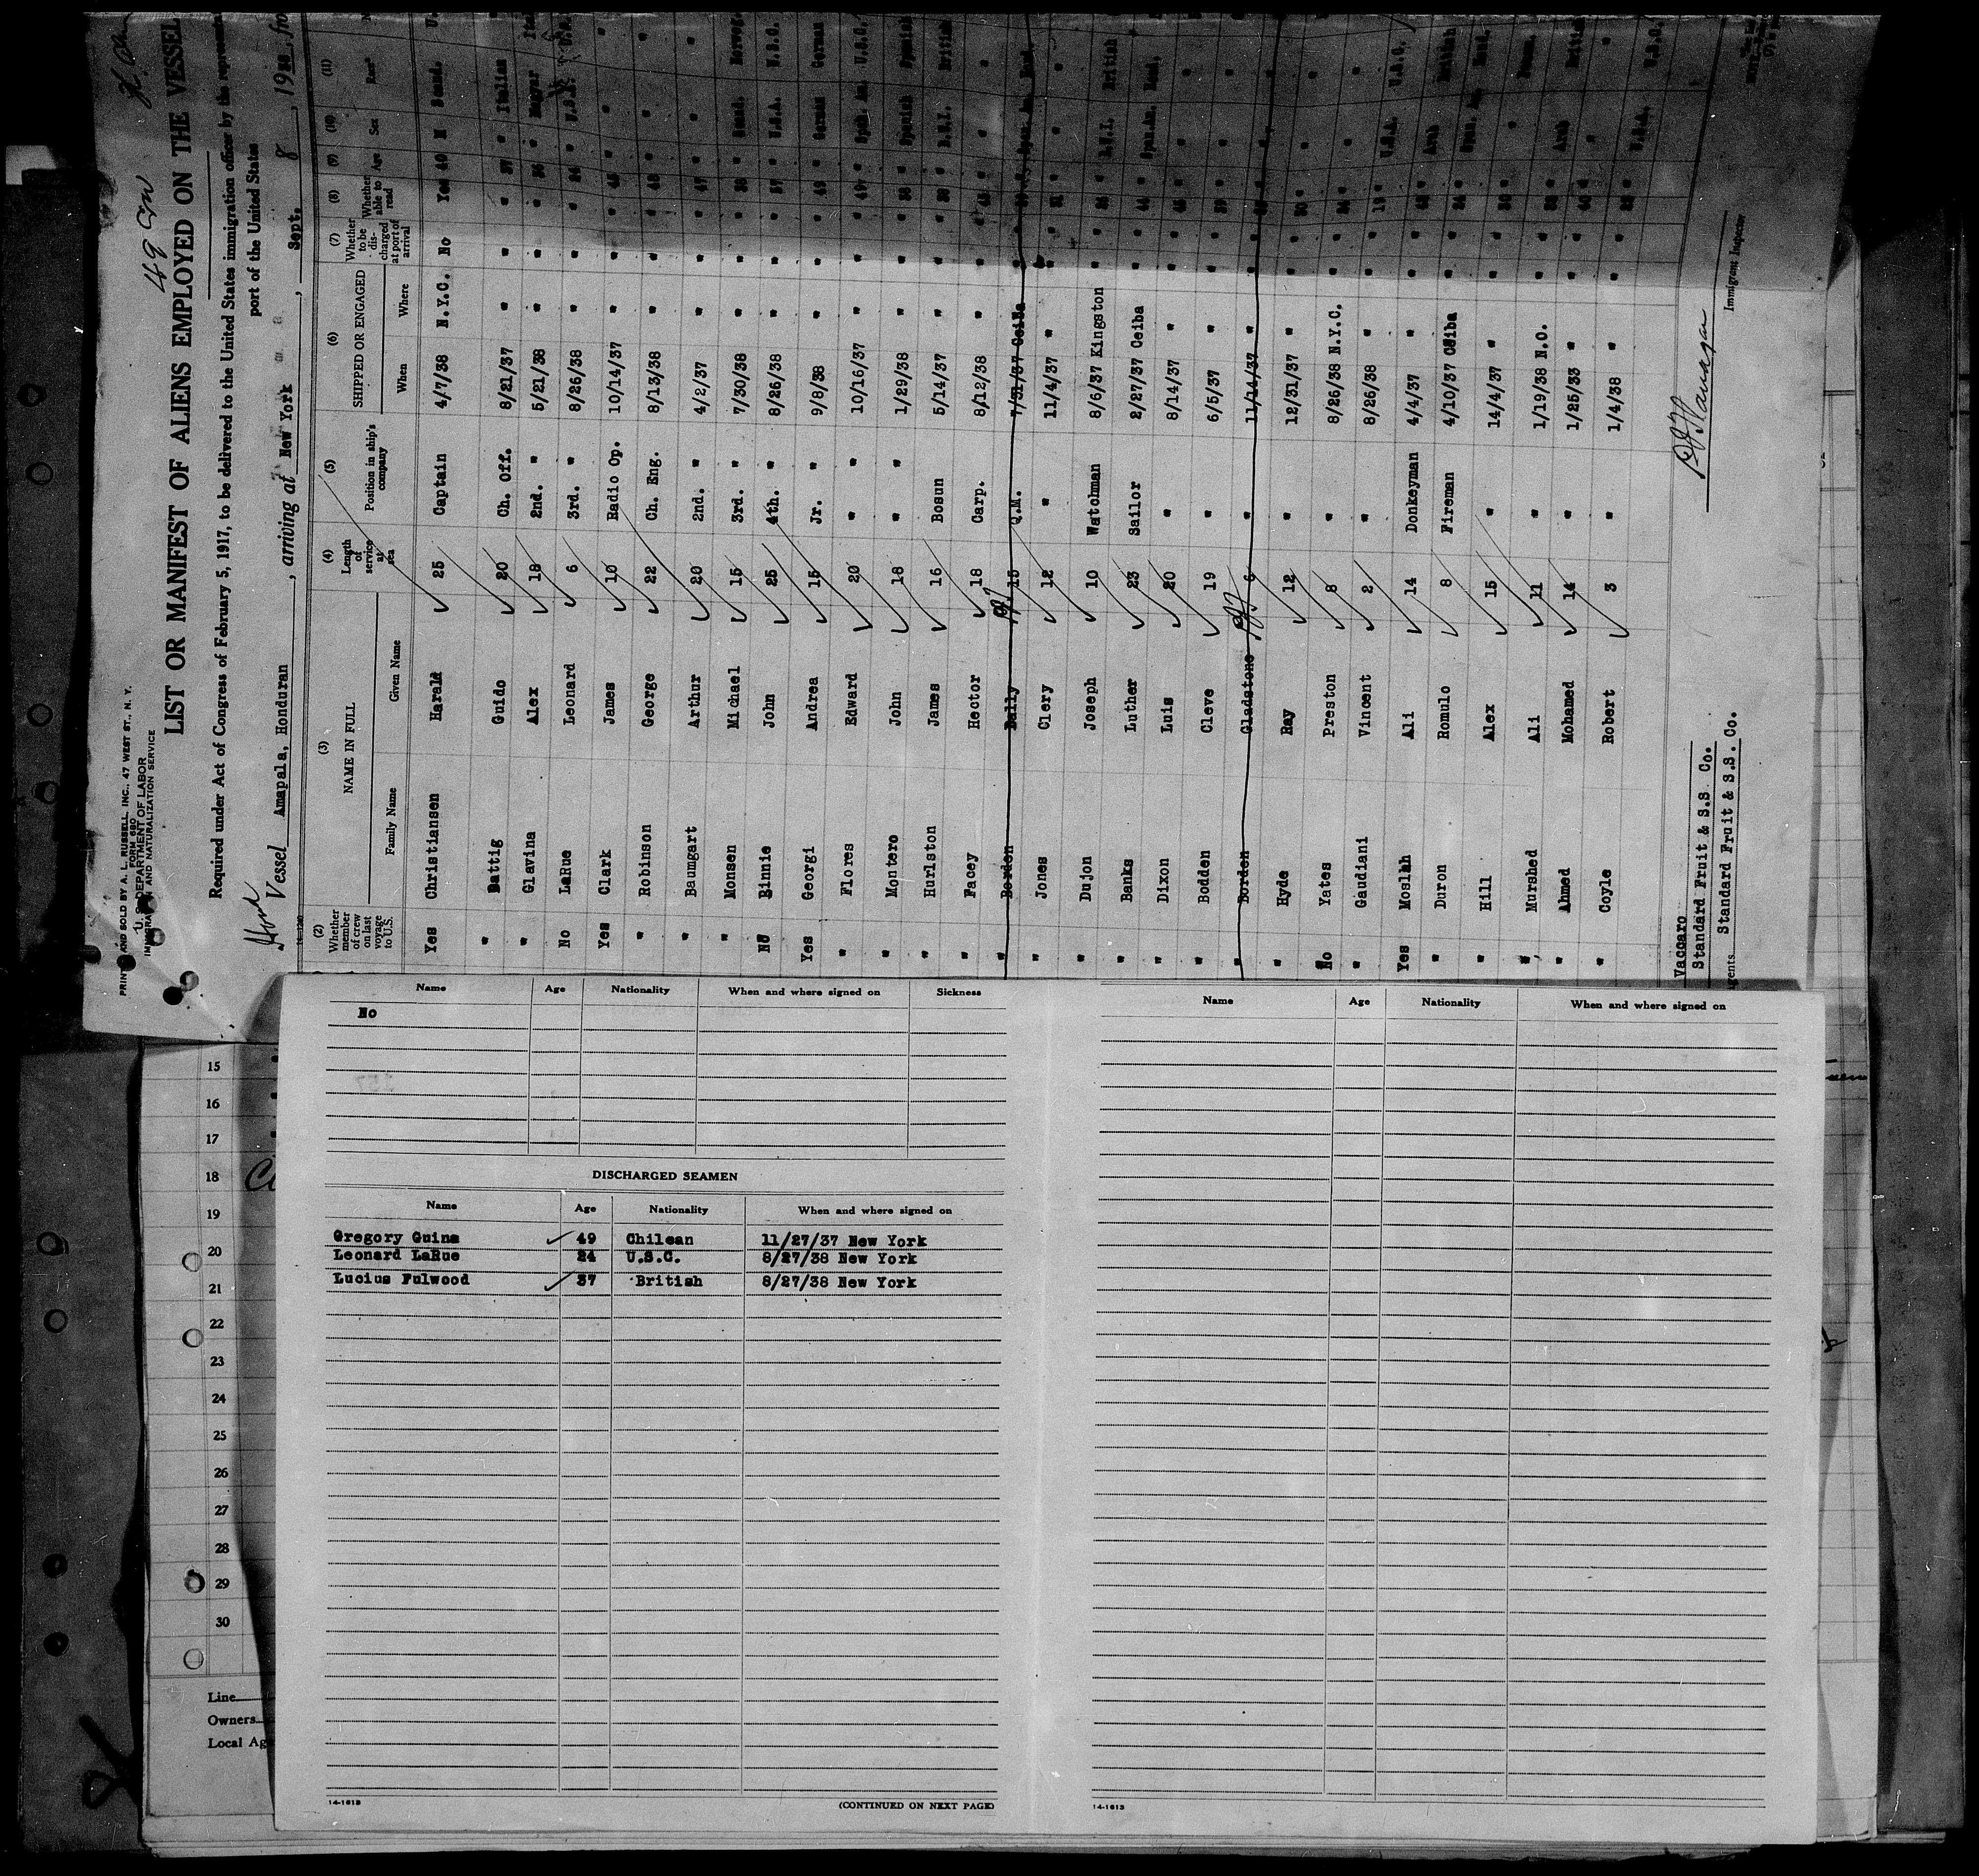 PRINTED AND SOLD BY A. L. RUSSELL, INC., 47 WEST ST., N. Y.
FORM 680
U. S. DEPARTMENT OF LABOR
IMMIGRATION AND NATURALIZATION SERVICE
LIST OR MANIFEST OF ALIENS EMPLOYED ON THE VESSEL
Required under Act of Congress of February 5, 1917, to be delivered to the United States immigration officer by the
port of the United States
Vessel Amapala, Honduran, arriving at New York, Sept. 8, 19
(2) (3) (4) (5) (6) (7) (8) (9) (10) (11)
Whether member of crew on last voyage to U.S. NAME IN FULL Family Name Given Name Length of service at sea Position in ship's company SHIPPED OR ENGAGED When Where Whether to be discharged at port of arrival Whether able to read Age Sex Race*
Yes Christiansen Harald 25 Captain 4/7/38 N.Y.C. No Yes 40 M Scand.
" Battig Guido 20 Ch. Off. 8/21/37 " " " 37 " Italian
" Glavina Alex 18 2nd. " 5/21/38 " " " " Magyar
No LaRue Leonard 6 3rd. " 8/26/38 " " " 24 "
Yes Clark James 10 Radio Op. 10/14/37 " " " "
" Robinson George 22 Ch. Eng. 8/13/38 " " " "
" Baumgart Arthur 20 2nd. " 4/2/37 " " " 47 " "
" Monsen Michael 15 3rd. " 7/30/38 " " " 38 " Scand. Norweg.
No Binnie John 25 4th. " 8/26/38 " " " 57 " U.S.A. U.S.C.
Yes Georgi Andrea 15 Jr. " 9/8/38 " " " 49 " German German
" Flores Edward 20 " " 10/16/37 " " " 49 " Span. Am. U.S.C.
" Montero John 18 " " 1/29/38 " " " 38 " Spanish Spanish
" Hurlston James 16 Bosun 5/14/37 " " " " B.W.I. British
" Facey Hector 18 Carp. 8/12/38 " " " " " "
" Borden Dally 15 Q.M. 7/31/37 Ceiba
" Jones Clery 12 " 11/4/37 "
" Dujon Joseph 10 Watchman 8/6/37 Kingston " " " B.W.I. British
" Banks Luther 23 Sailor 2/27/37 Ceiba " " 44 " Span.Am. Hond.
" Dixon Luis 20 " 8/14/37 "
" Bodden Cleve 19 " 6/5/37 "
" Borden Gladstone 6 " 11/14/37 "
" Hyde Ray 12 " 12/31/37 "
No Yates Preston 8 " 8/26/38 N.Y.C.
" Gaudiani Vincent 2 " 8/26/38 " " " 19 " U.S.A. U.S.C.
Yes Moslah Ali 14 Donkeyman 4/4/37 " " " " Arab British
" Duron Romulo 8 Fireman 4/10/37 Ceiba " " 24 " Span. Am. Hond.
" Hill Alex 15 " 14/4/37 "
" Murshed Ali 11 " 1/19/38 N.O. " " " Arab British
" Ahmed Mohamed 14 " 1/25/33 " " " 40 " " "
" Coyle Robert 3 " 1/4/38 " " " " U.S.A. U.S.C.
Vaccaro
Standard Fruit & S.S. Co.
Standard Fruit & S.S. Co.
Immigrant Inspector
Name Age Nationality When and where signed on Sickness
No
DISCHARGED SEAMEN
Name Age Nationality When and where signed on
Gregory Guina 49 Chilean 11/27/37 New York
Leonard LaRue 24 U.S.C. 8/27/38 New York
Lucius Fulwood 37 British 8/27/38 New York
14-1613
(CONTINUED ON NEXT PAGE)
Name Age Nationality When and where signed on
14-1613
15
16
17
18
19
20
21
22
23
24
25
26
27
28
29
30
Line
Owners
Local Ag